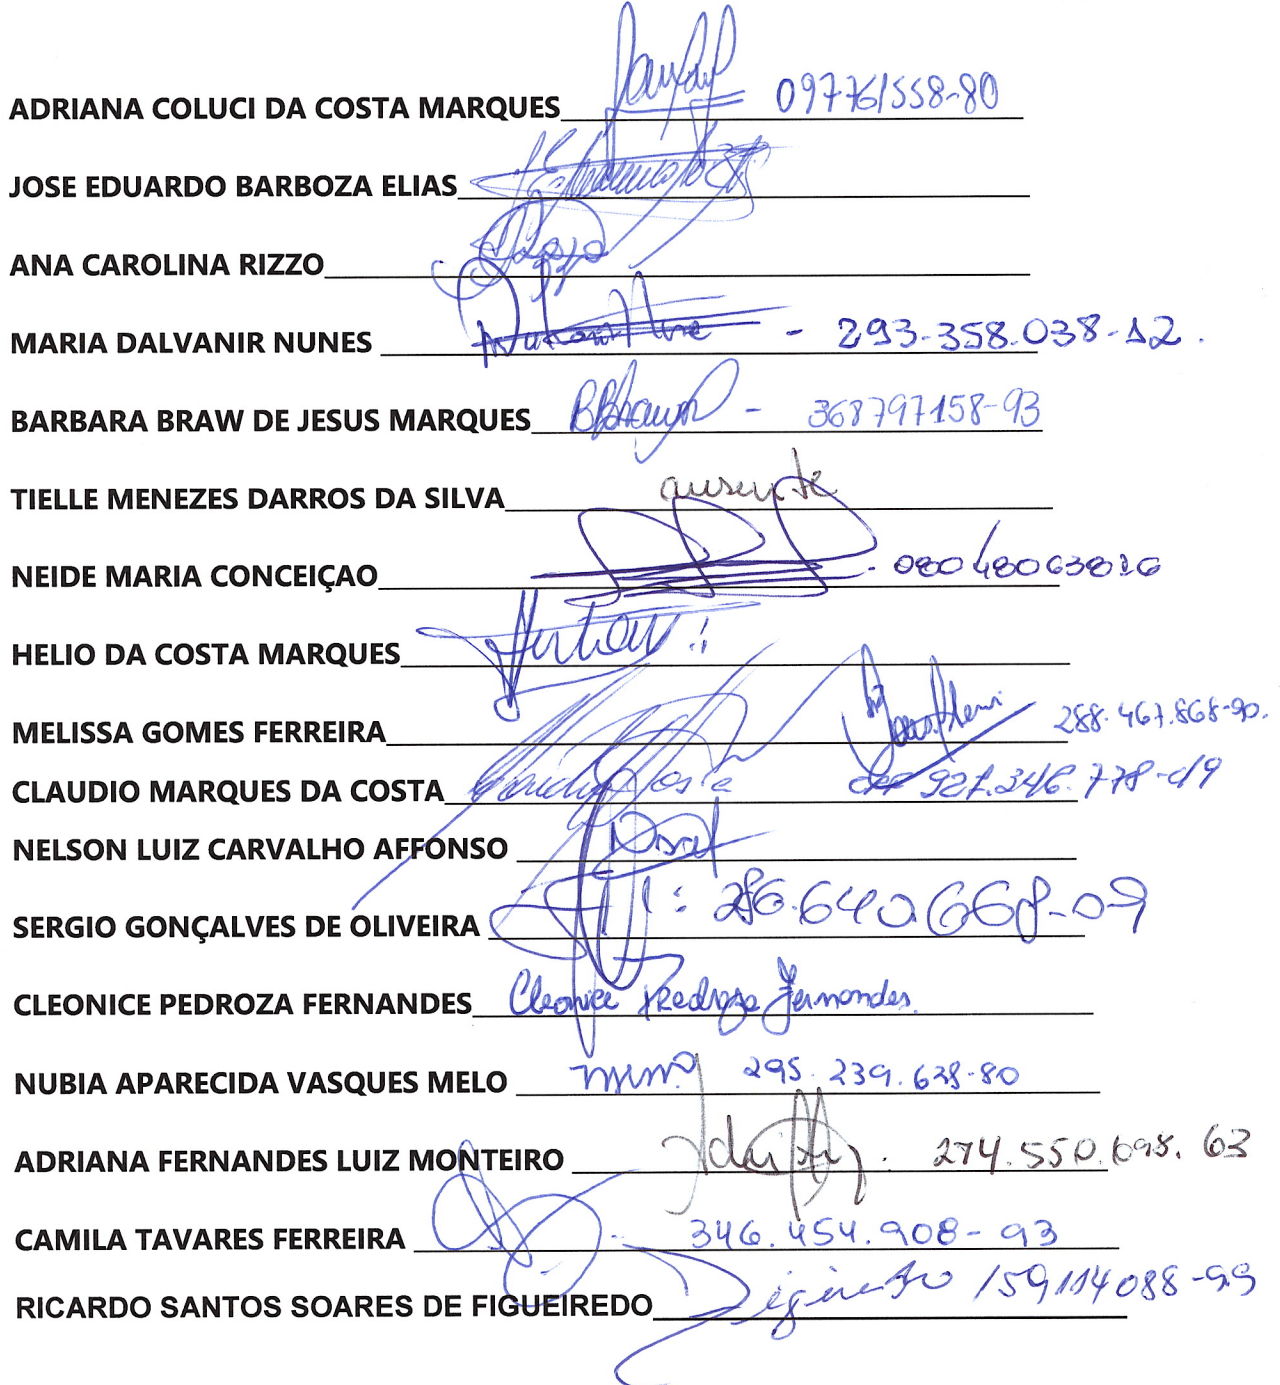 ADRIANA COLUCI DA COSTA MARQUES 097761558-80
JOSE EDUARDO BARBOZA ELIAS
ANA CAROLINA RIZZO
MARIA DALVANIR NUNES - 293.358.038-12.
BARBARA BRAW DE JESUS MARQUES - 368797158-93
TIELLE MENEZES DARROS DA SILVA ausente
NEIDE MARIA CONCEIÇAO
HELIO DA COSTA MARQUES
MELISSA GOMES FERREIRA 288.467.868-90.
CLAUDIO MARQUES DA COSTA
NELSON LUIZ CARVALHO AFFONSO
SERGIO GONÇALVES DE OLIVEIRA
CLEONICE PEDROZA FERNANDES Cleonice Pedroza Fernandes
NUBIA APARECIDA VASQUES MELO 295.239.628-80
ADRIANA FERNANDES LUIZ MONTEIRO 274.550.698.63
CAMILA TAVARES FERREIRA 346.454.908-93
RICARDO SANTOS SOARES DE FIGUEIREDO 159114088-99